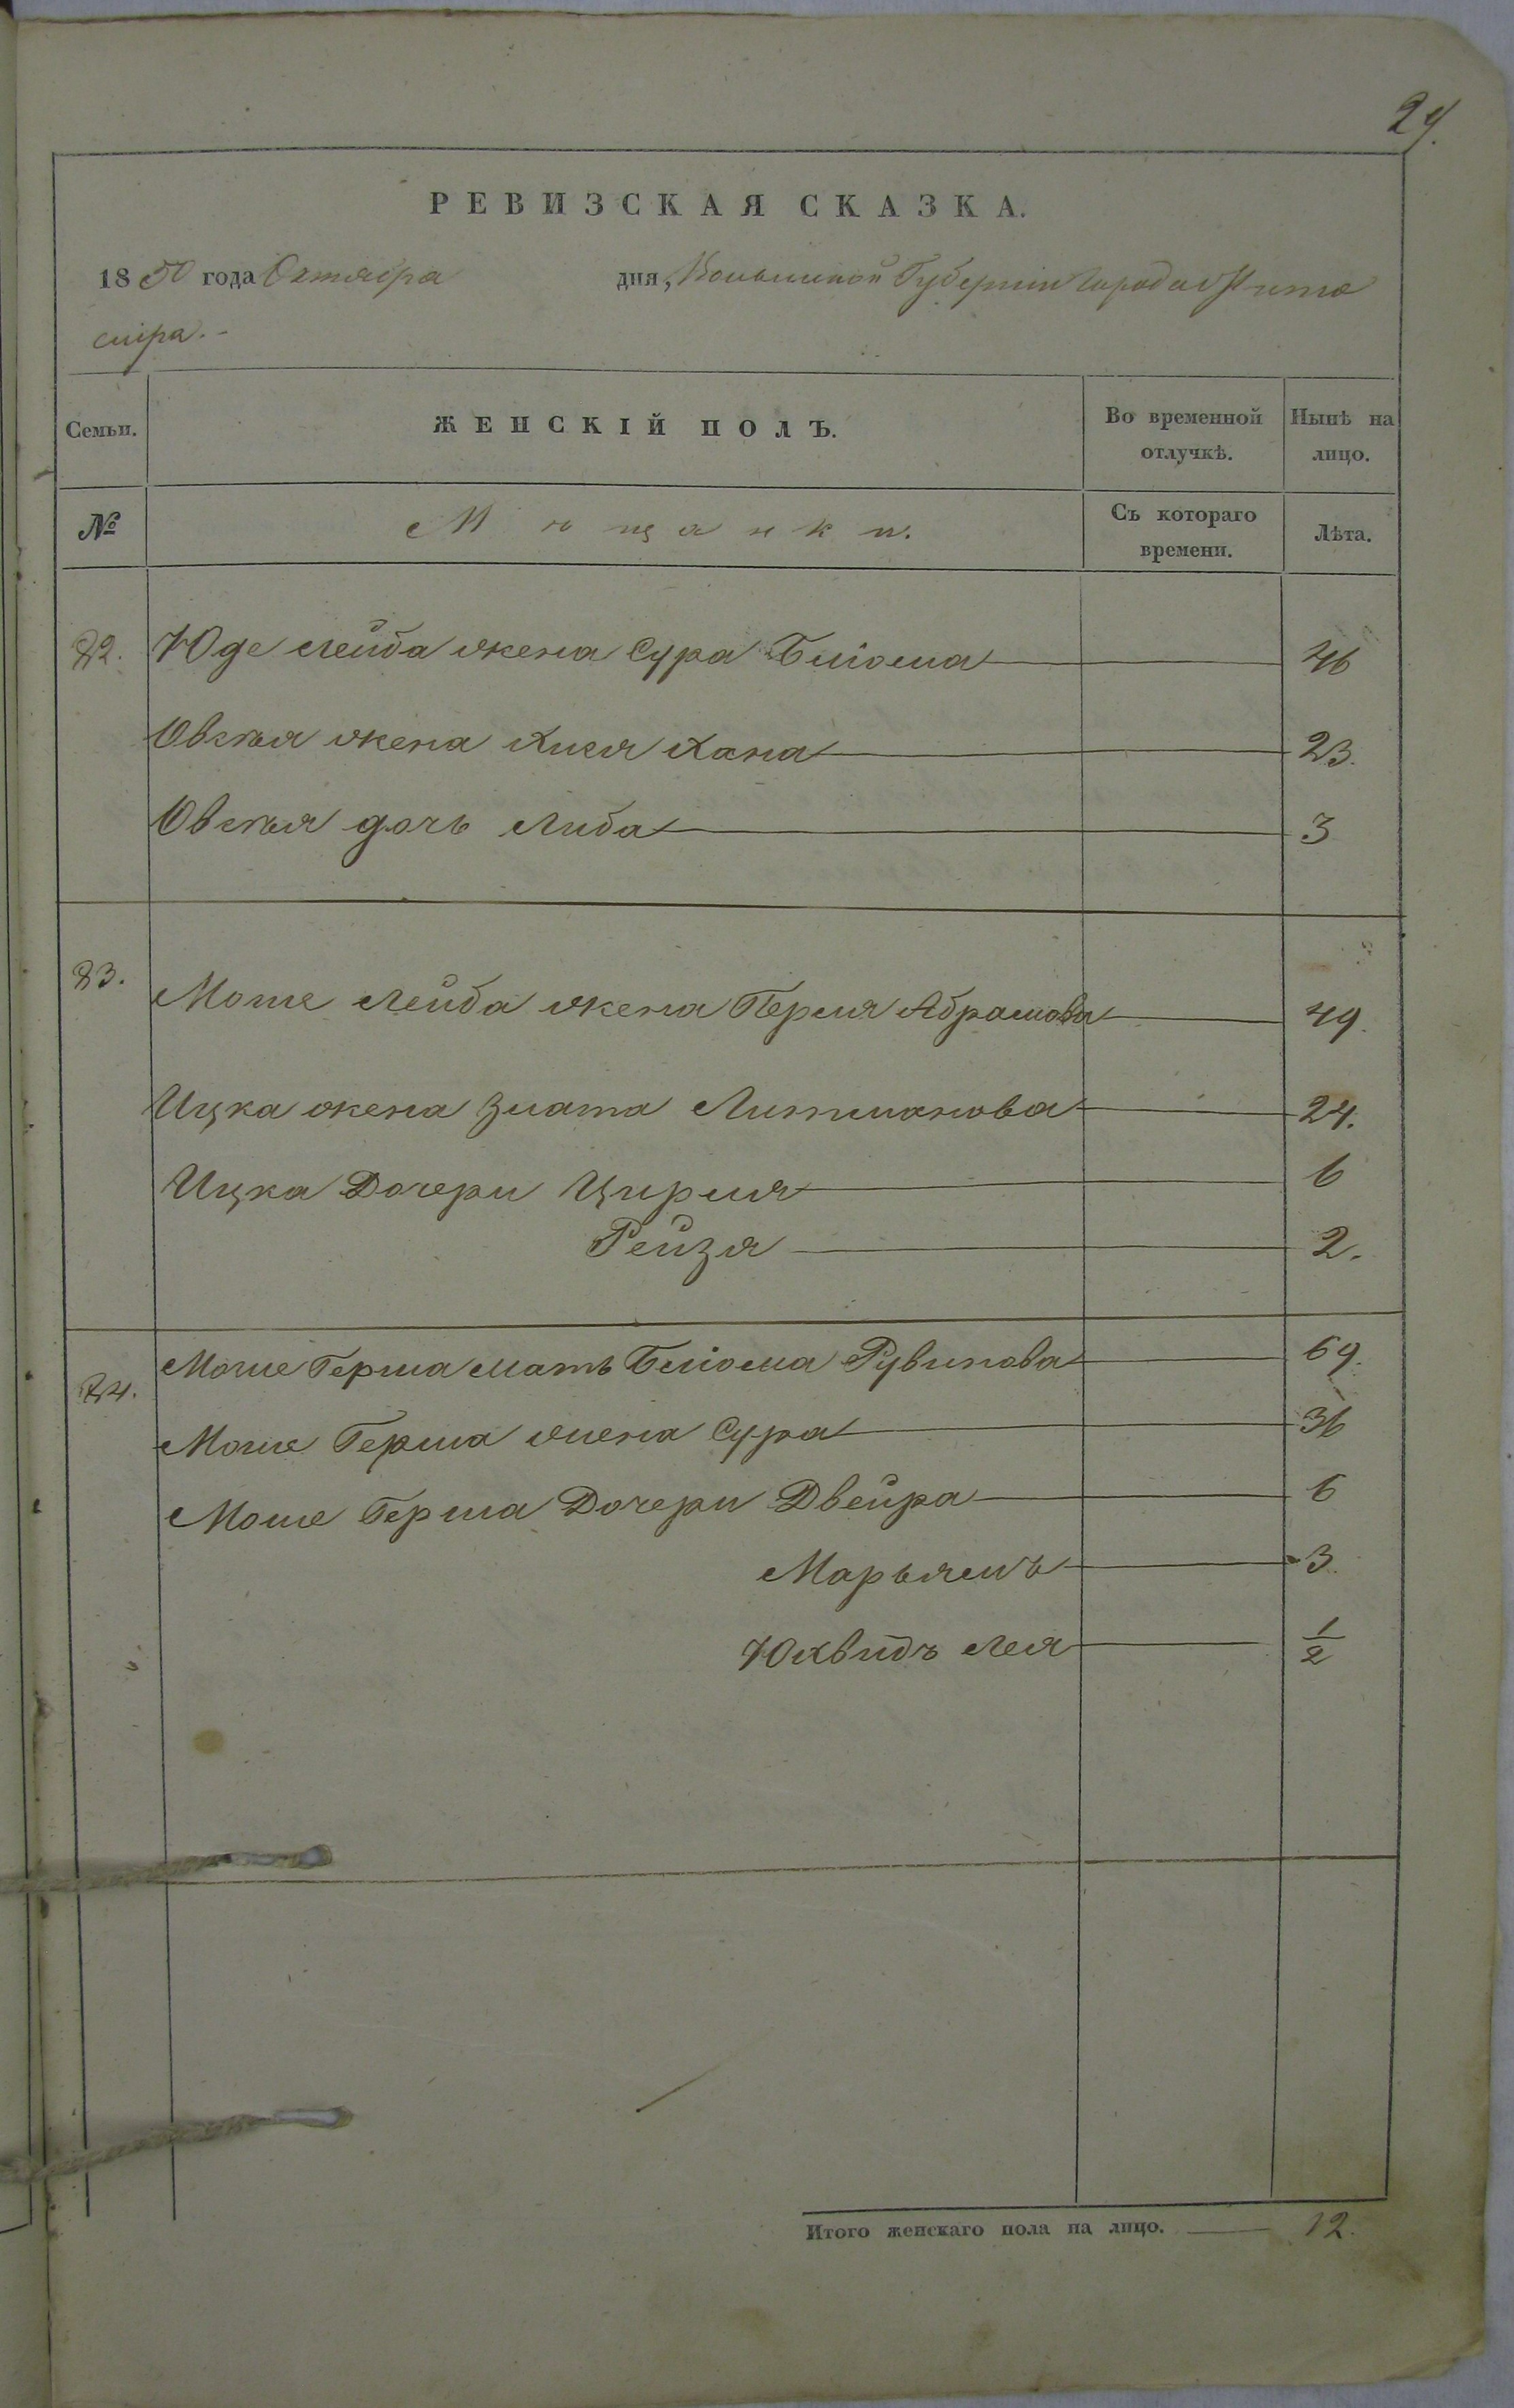 29.
РЕВИЗСКАЯ СКАЗКА.
1850 года Октября дня, Волынской Губернiи Города Жито
мiра.-
Семьи. ЖЕНСКІЙ ПОЛЪ. Во временной отлучкѣ. Нынѣ на лицо.
№ Мѣщанки. Съ котораго времени. Лѣта.
22. Юде Лейба жена Сура Блiома 46
Овсѣя жена Хися Хана 23.
Овсѣя дочь Либа 3
23. Моше Лейба жена Перля Абрамова 49.
Ицка жена Злата Литманова 24.
Ицка Дочери Цирля 6
Рейзя 2.
24. Моше Герша мать Блiома Рувинова 69.
Моше Герша жена Сура 36
Моше Герша Дочери Двейра 6
Марьямъ 3.
Юхвидъ Лея 1/2
Итого женскаго пола на лицо. 12.